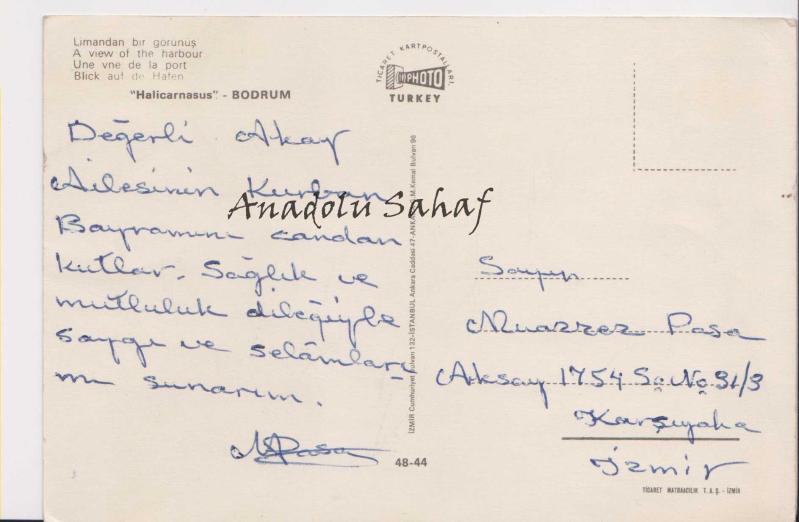 Limandan bir görünüş
A view of the harbour
Une vne de la port
Blick auf de Hafen
"Halicarnasus" - BODRUM
TİCARET KARTPOSTALLARI.
PHOTO
TURKEY
Değerli Akay
Ailesinin Kurban
Bayramını candan
kutlar. Sağlık ve
mutluluk dileğiyle
saygı ve selâmları
mı sunarım.
Anadolu Sahaf
İZMİR Cumhuriyet Bulvarı 132-İSTANBUL Ankara Caddesi 47-ANKARA M. Kemal Bulvarı 96
48-44
Sayın
Muazzez Pasa
Aksay 1754 So. No 31/3
Karşıyaka
İzmir
TİCARET MATBAACILIK T.A.Ş. - İZMİR